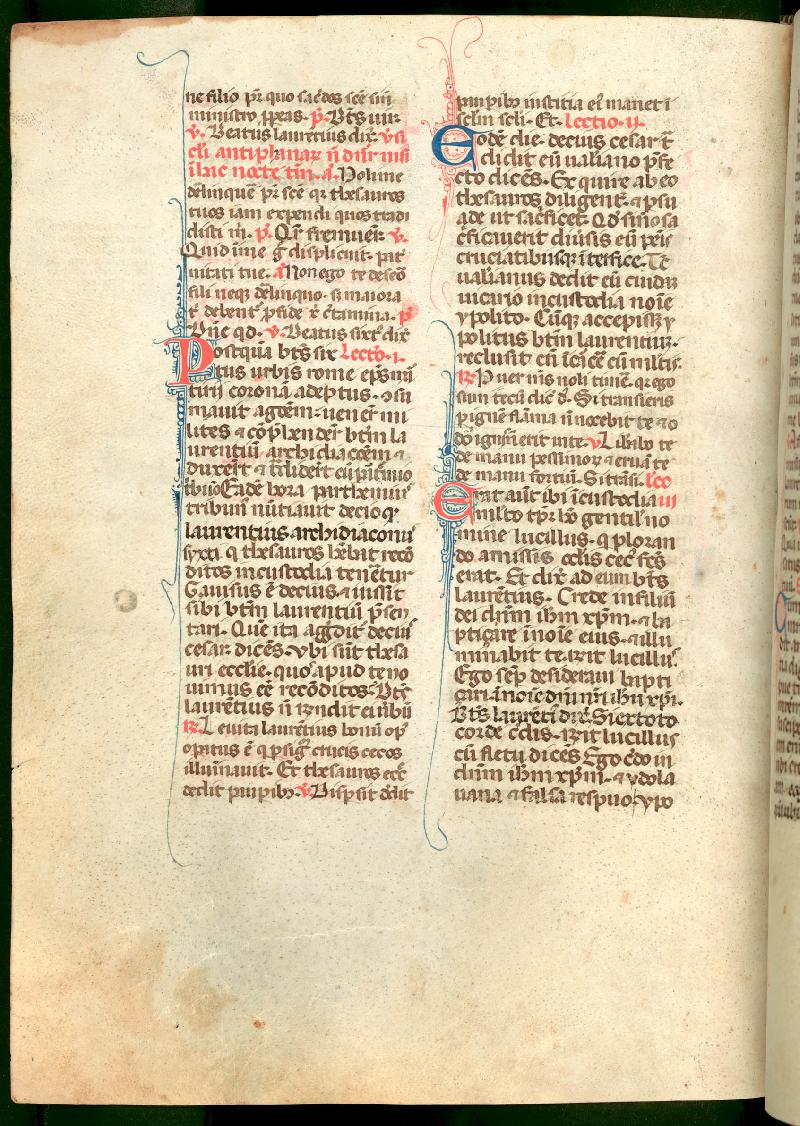 ne filio pr̄ quo sac̄dos sc̄e sin
ministro ꝓꝑeas. p̄. Bt̄s uir
v. Beatus laurētius dix̄. v̄si
cli antiphanaꝝ n̄ dn̄r nisi
ī hac nocte tm̄. a. Noli me
delinque᷑ pr̄ sc̄e qr̄ thesauros
tuos iam expendi quos tradi
disti m̄. p̄. Qr̄e fremuer̄. v.
Quid in me g̊ displicuit. pr̄
nitati tue. a. Non ego te desero
fili neqꝫ delinquo. sꝫ maiora
t̄ debent᷑ p̄ fide x̄ c̄tamina. p̄
Dn̄e qd. v. Beatus sixt᷑ dix̄
Postquā bt̄s six Lectio. i.
tus urbis rome ep̄s m̄
tirii coronā adeptus. ⁊ si
mauit agōem. uener̄t mi
lites ⁊ cōp̄henders̄t btm̄ la
urentiū archidiaconem ⁊
duxer̄t ⁊
Eadē hora parthemi᷑
tribuni nūtiauit decio qꝫ
laurentius archidiaconus
syxti q thesauros hēbat recō
ditos in custodia tenētur
Gauisus ē decius. ⁊ iussit
sibi btm̄ laurentiū p̄sen
tari. Quē ita aggdit᷑ decius
cesar dicēs. Vbi sūt thesa
uri ecclie. quos apud te no
uimus eē recōditos. Bt̄s
laurētius n̄ rn̄dit ei ūbū
R. Leuita laurētius bonū op᷑
opatus ē q ꝑ sig᷑ crucis cecos
illūinauit. Et thesauros ecc̄
dedit pauꝑibꝰ. v. Disꝑsit dedit
pauꝑibꝰ iustitia eiꝰ manet ī
sclm scli. Et. Lectio. ii.
Eodē die. decius cesar t̄
didit eū ualiano p̄fe
cto dicēs. Exquire ab eo
thesauros diligent᷑. ⁊ ip̄su
ade ut sac̄ficet. Qd si si sa
c̄ficauerit diu̅sis eū pen̄
cruciatibusqꝫ īterfice. Tc̄
ualianus dedit eū cuidā
uicario in custodia noīe
ypolito. Cūqꝫ accepissꝫ y
politus btm̄ laurentiuꝫ.
reclusit eū ī c̄cē cū m̄ltis.
R. Puer mis noli timē. qr̄ ego
sum tecū dic̄ d. Si transieris
ꝑ ignē flāma n̄ nocebit te ⁊ o
dor ignis n̄ erit in te. v. Libabo te
de manu pessimoꝝ ⁊ eruā te
de manu fortiū. Si trāsi. Lec̄
Erat aūt ibi ī custodia iii
m̄lto tp̄r hō gentil no
mine lucillus. q ploran
do amissis oclis cec᷑ fc̄s
erat. Et dix̄ ad eum bt̄s
laurētius. Crede in filiū
dei dn̄m ihm xp̄m. ⁊ ba
pticare ī noīe eius. ⁊ illu
minabit te. rn̄dit lucillus
Ego semꝑ desideraui bapti
çari ī noīe dn̄i nr̄i ihū xp̄i.
Bt̄s laurēti᷑ dix̄. Si ex toto
corde c̄dis. rn̄dit lucillus
cū fletu dicēs Ego c̄do in
dn̄m ihm xp̄m. ⁊ ydola
uana ⁊ falsa respuo. ypo